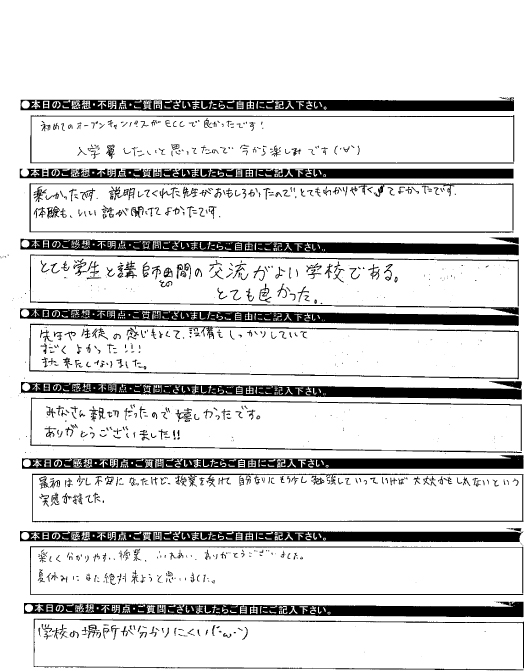 ●本日のご感想・不明点・ご質問ございましたらご自由にご記入下さい。
初めてのオープンキャンパスがECCで良かったです!
入学したいと思ってたので今から楽しみです(^∀^)
●本日のご感想・不明点・ご質問ございましたらご自由にご記入下さい。
楽しかったです. 説明してくれた先生がおもしろかったので、とてもわかりやすくてよかったです.
体験も、いい話が聞けてよかったです.
●本日のご感想・不明点・ご質問ございましたらご自由にご記入下さい。
とても学生と講師との間の交流がよい学校である。
とても良かった。
●本日のご感想・不明点・ご質問ございましたらご自由にご記入下さい。
先生や生徒の感じもよくて、設備もしっかりしていて
すごくよかった!!!
また来たくなりました。
●本日のご感想・不明点・ご質問ございましたらご自由にご記入下さい。
みなさん親切だったので嬉しかったです。
ありがとうございました!!
●本日のご感想・不明点・ご質問ございましたらご自由にご記入下さい。
最初は少し不安になったけど、授業を受けて自分なりにもう少し勉強していっていけば大丈夫かもしれないという
実感が持てた.
●本日のご感想・不明点・ご質問ございましたらご自由にご記入下さい。
楽しく分かりやすい授業、ふれあい、ありがとうございました。
夏休みにまた絶対来ようと思いました。
●本日のご感想・不明点・ご質問ございましたらご自由にご記入下さい。
学校の場所が分かりにくい(´・ω・`)